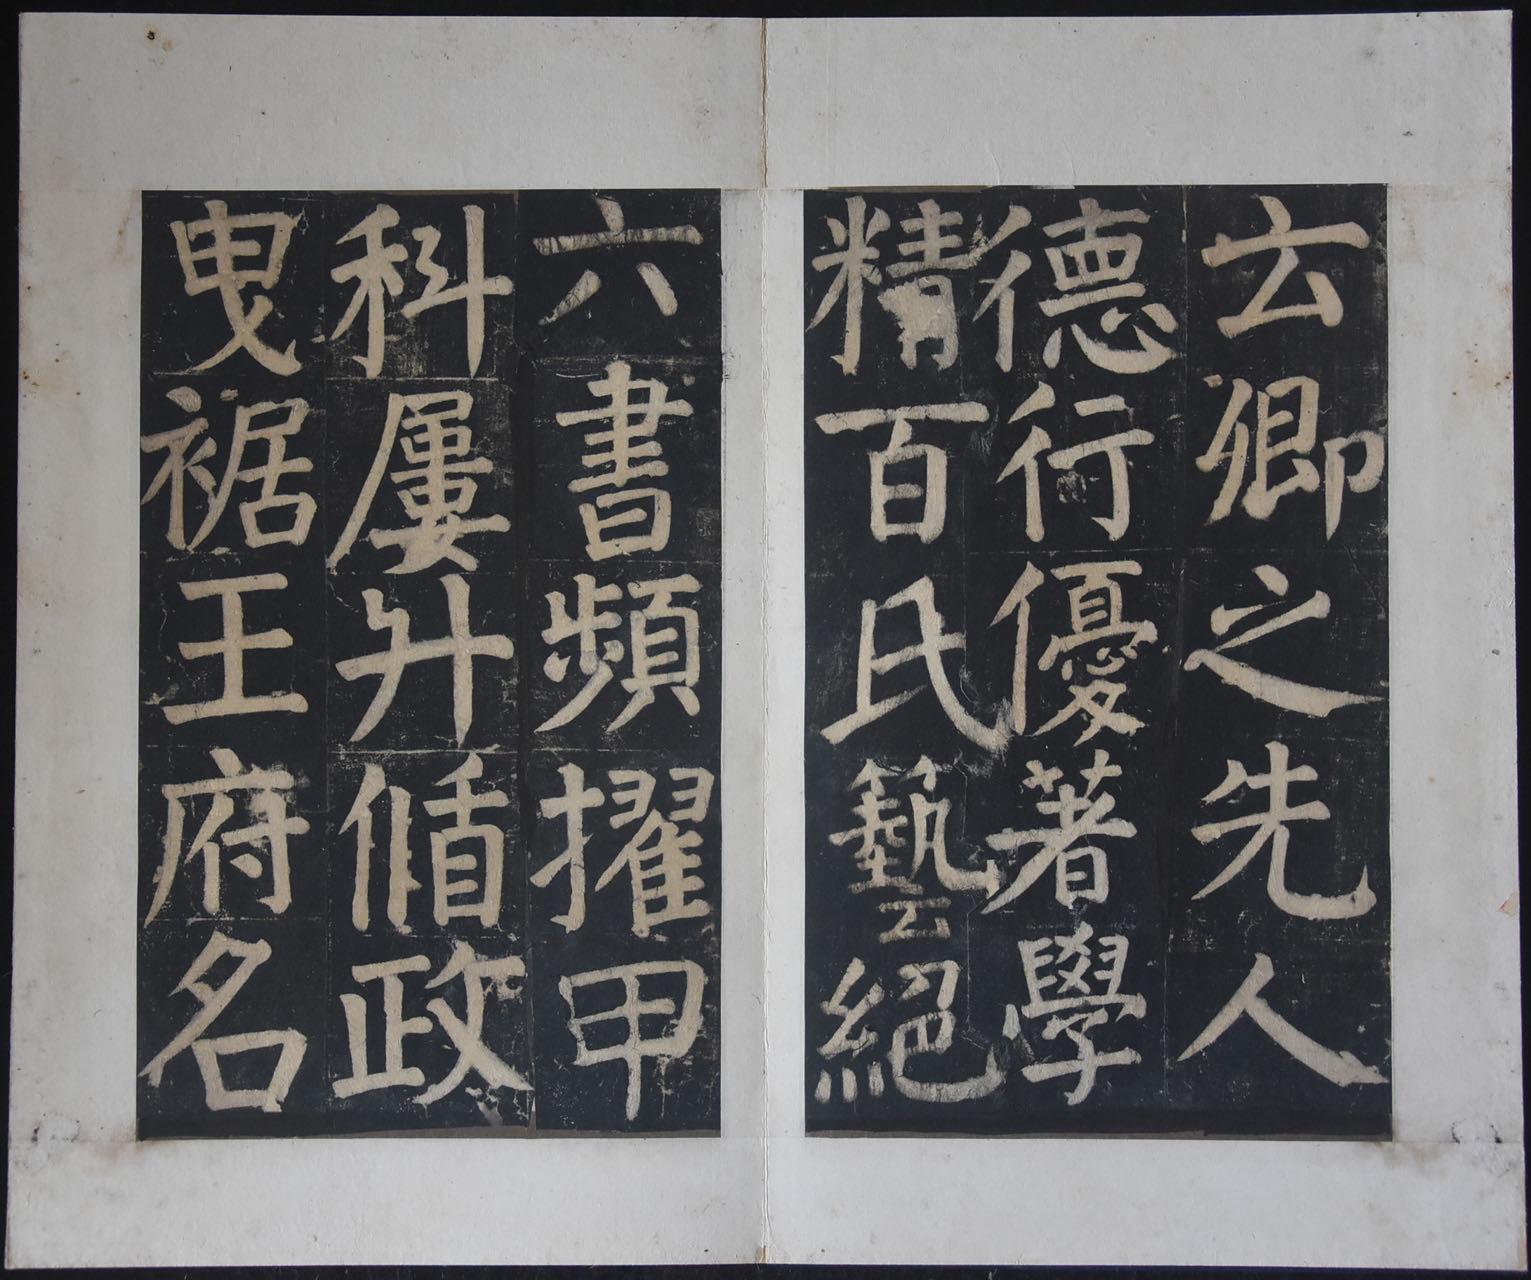 玄卿之先人
德行優著學
精百氏藝絕
六書頻擢甲
科屢升循政
曳裾王府名